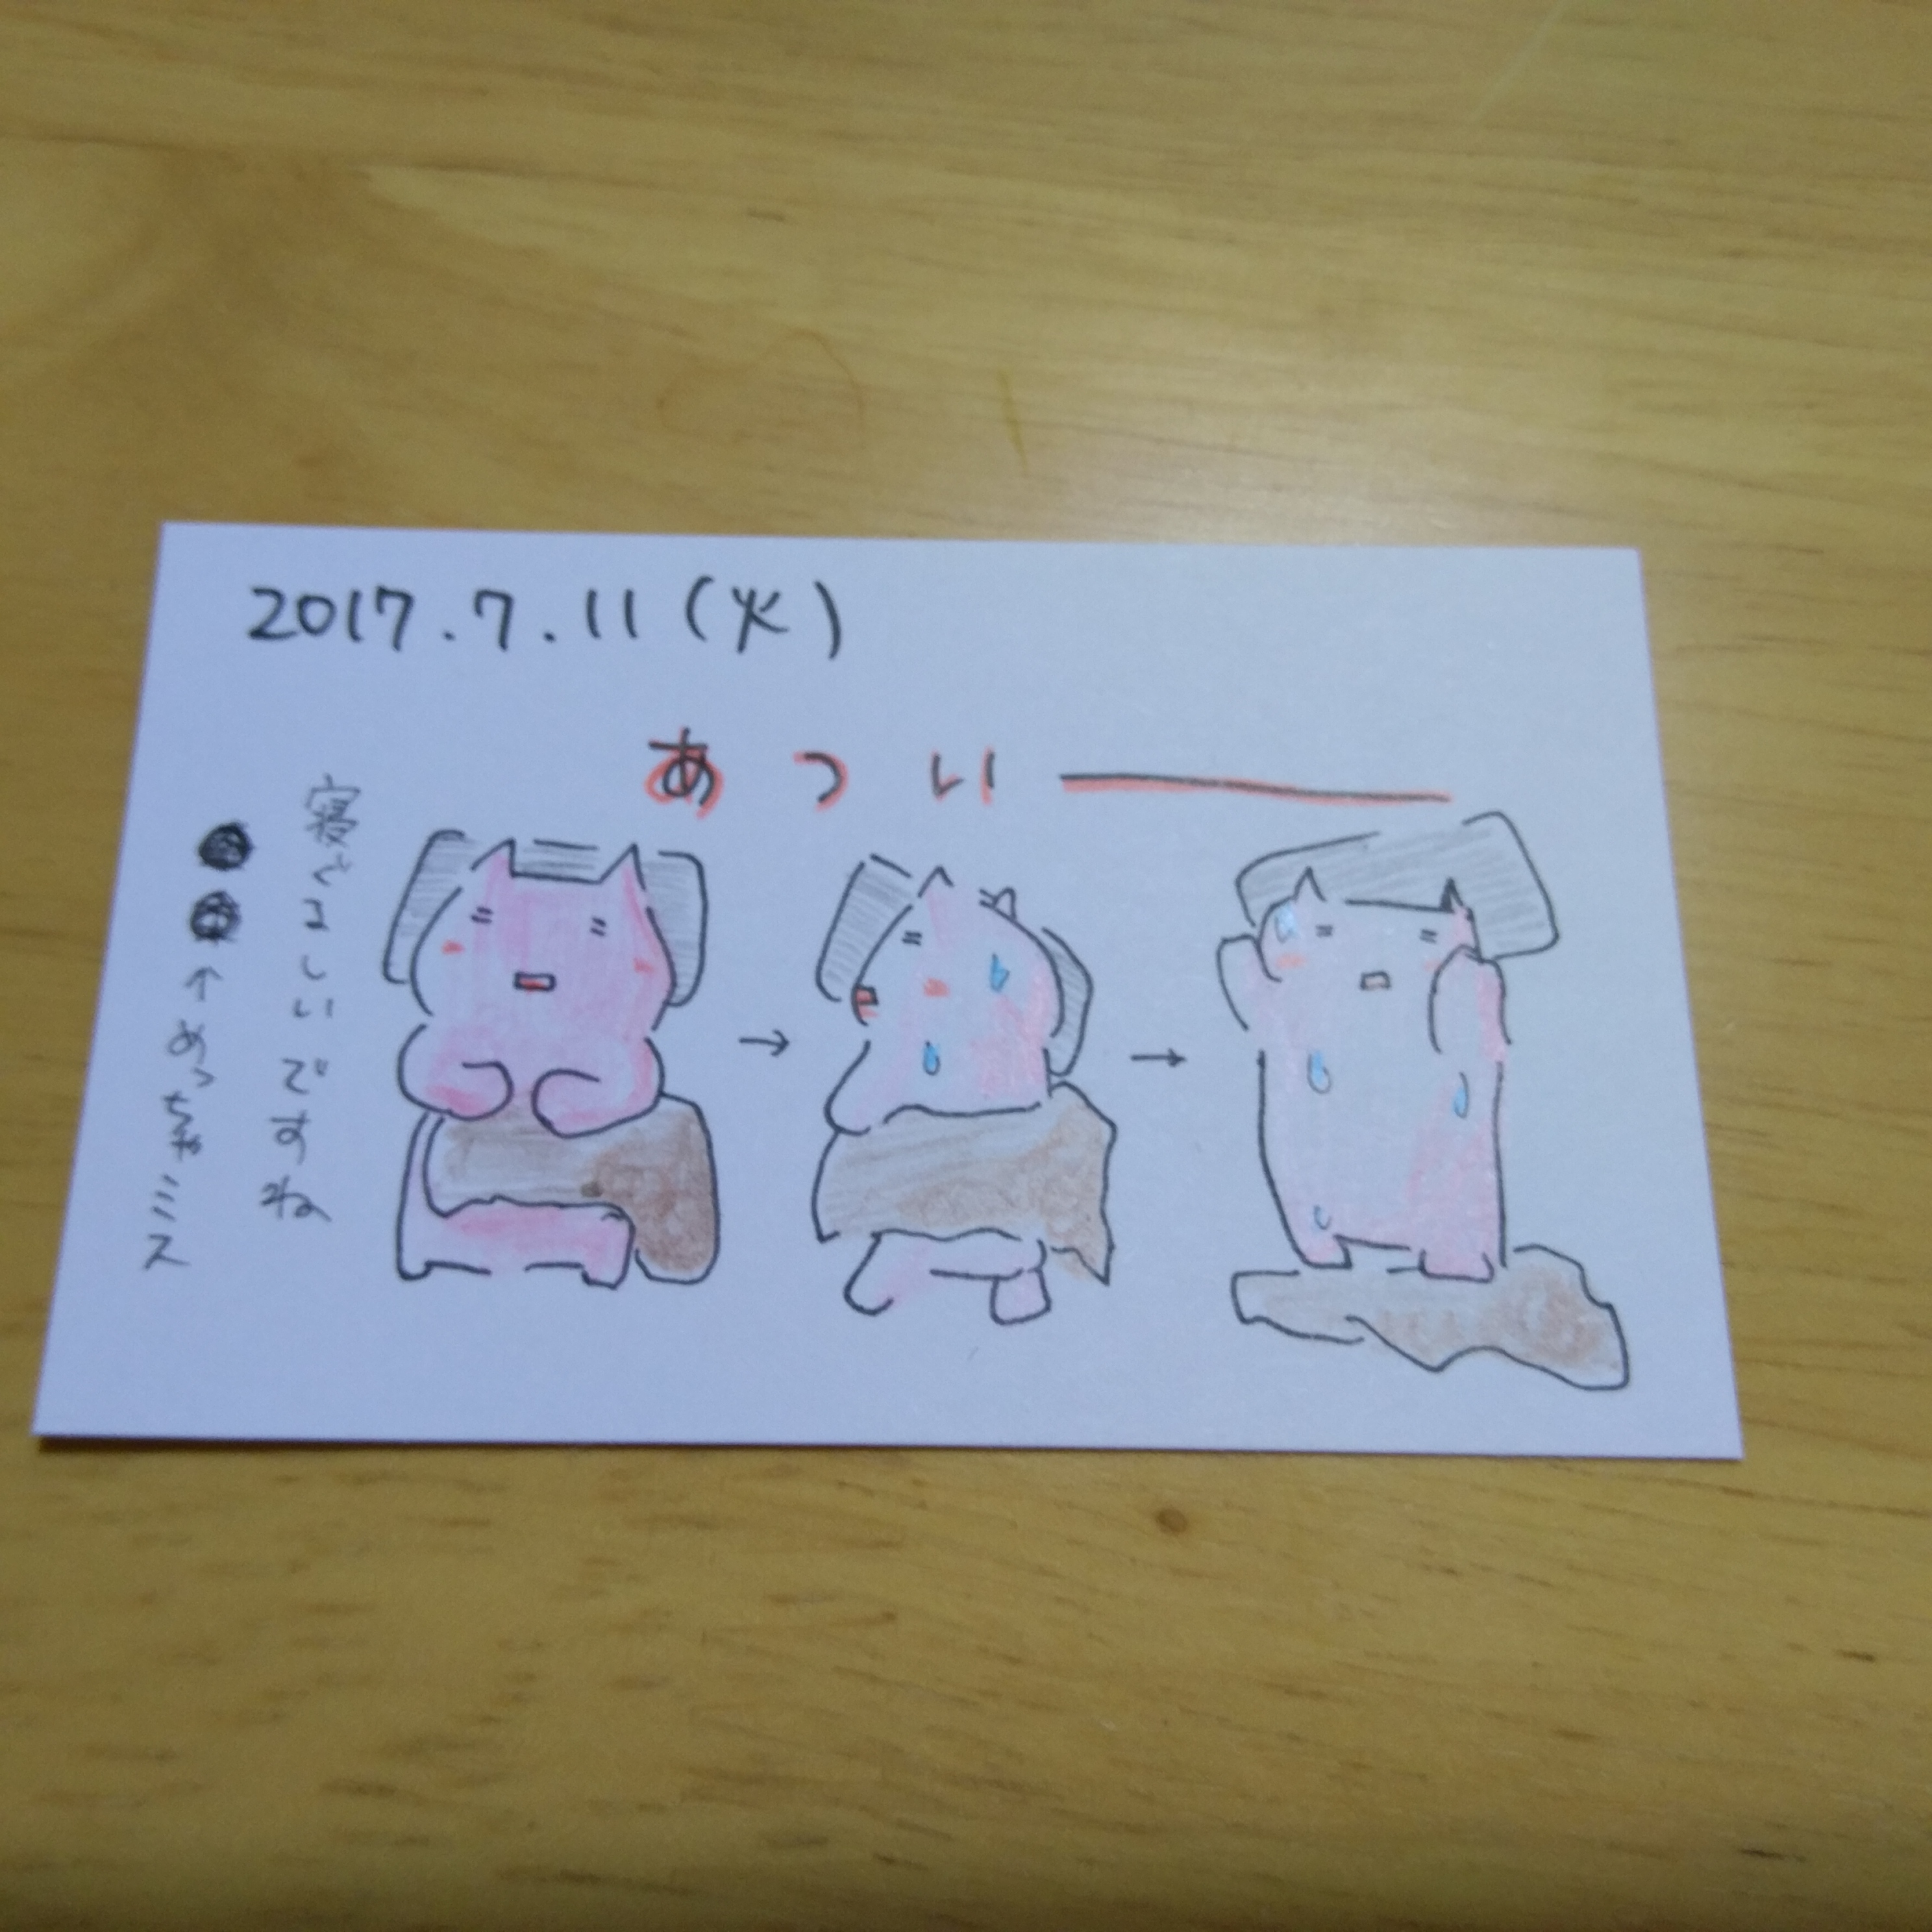 2017.7.11(火)
あつい――
寝ぐるしいですね
↑めっちゃミス